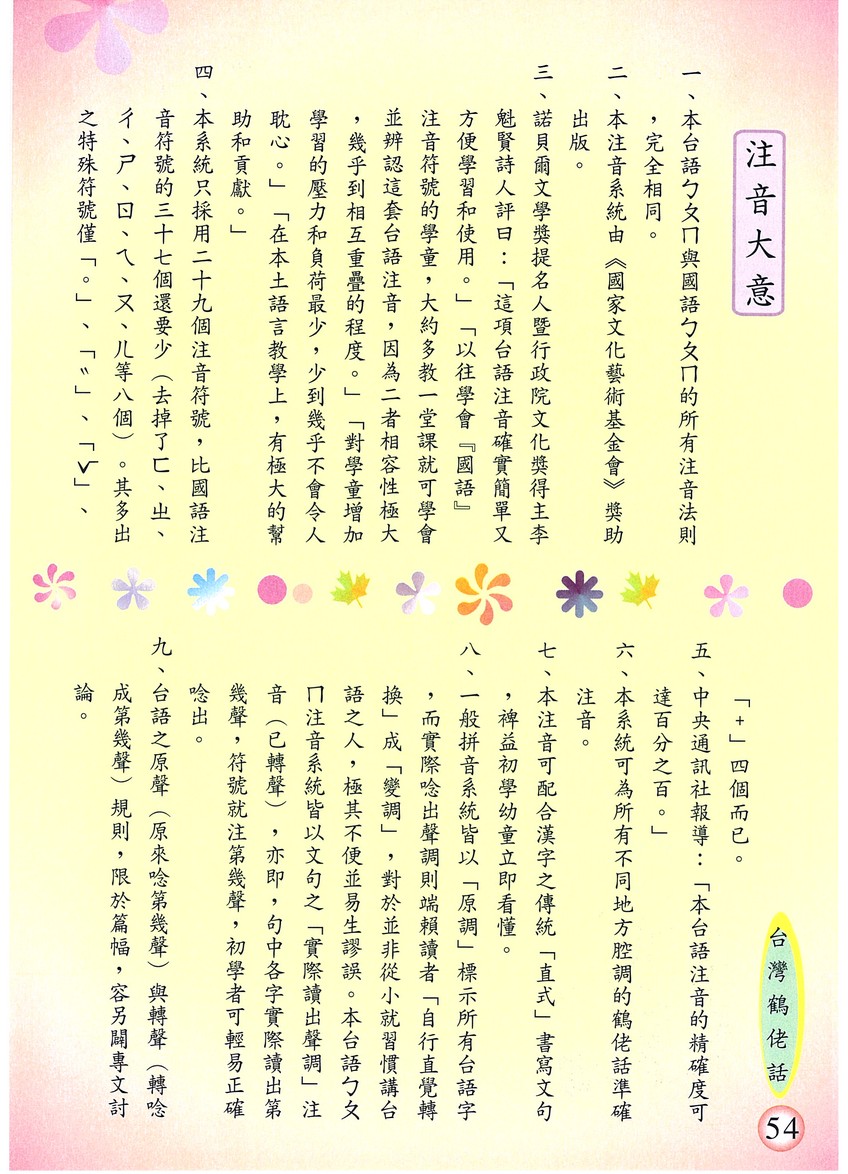 注音大意
一、本台語ㄅㄆㄇ與國語ㄅㄆㄇ的所有注音法則
，完全相同。
二、本注音系統由《國家文化藝術基金會》獎助
出版。
三、諾貝爾文學獎提名人暨行政院文化獎得主李
魁賢詩人評曰：「這項台語注音確實簡單又
方便學習和使用。」「以往學會『國語』
注音符號的學童，大約多教一堂課就可學會
並辨認這套台語注音，因為二者相容性極大
，幾乎到相互重疊的程度。」「對學童增加
學習的壓力和負荷最少，少到幾乎不會令人
耽心。」「在本土語言教學上，有極大的幫
助和貢獻。」
四、本系統只採用二十九個注音符號，比國語注
音符號的三十七個還要少（去掉了ㄈ、ㄓ、
ㄔ、ㄕ、ㄖ、ㄟ、ㄡ、ㄦ等八個）。其多出
之特殊符號僅「。」、「〃」、「ˇ」、
「+」四個而已。
五、中央通訊社報導：「本台語注音的精確度可
達百分之百。」
六、本系統可為所有不同地方腔調的鶴佬話準確
注音。
七、本注音可配合漢字之傳統「直式」書寫文句
，裨益初學幼童立即看懂。
八、一般拼音系統皆以「原調」標示所有台語字
，而實際唸出聲調則端賴讀者「自行直覺轉
換」成「變調」，對於並非從小就習慣講台
語之人，極其不便並易生謬誤。本台語ㄅㄆ
ㄇ注音系統皆以文句之「實際讀出聲調」注
音（已轉聲），亦即，句中各字實際讀出第
幾聲，符號就注第幾聲，初學者可輕易正確
唸出。
九、台語之原聲（原來唸第幾聲）與轉聲（轉唸
成第幾聲）規則，限於篇幅，容另闢專文討
論。
台灣鶴佬話
54